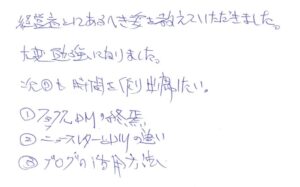 経営者としてあるべき姿を教えていただきました。
大変勉強になりました。
次回も時間を作り出席したい。
①ファックスDMの終焉
②ニュースレターとDMの違い
③ブログの活用方法